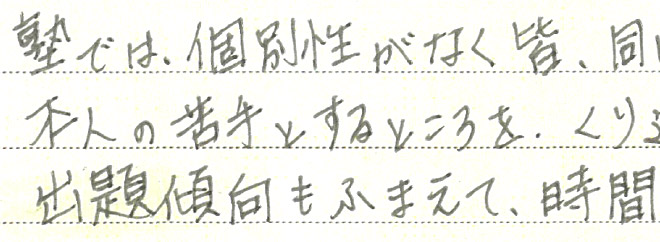 塾では、個別性がなく皆、同
本人の苦手とするところを、くり
出題傾向もふまえて、時間